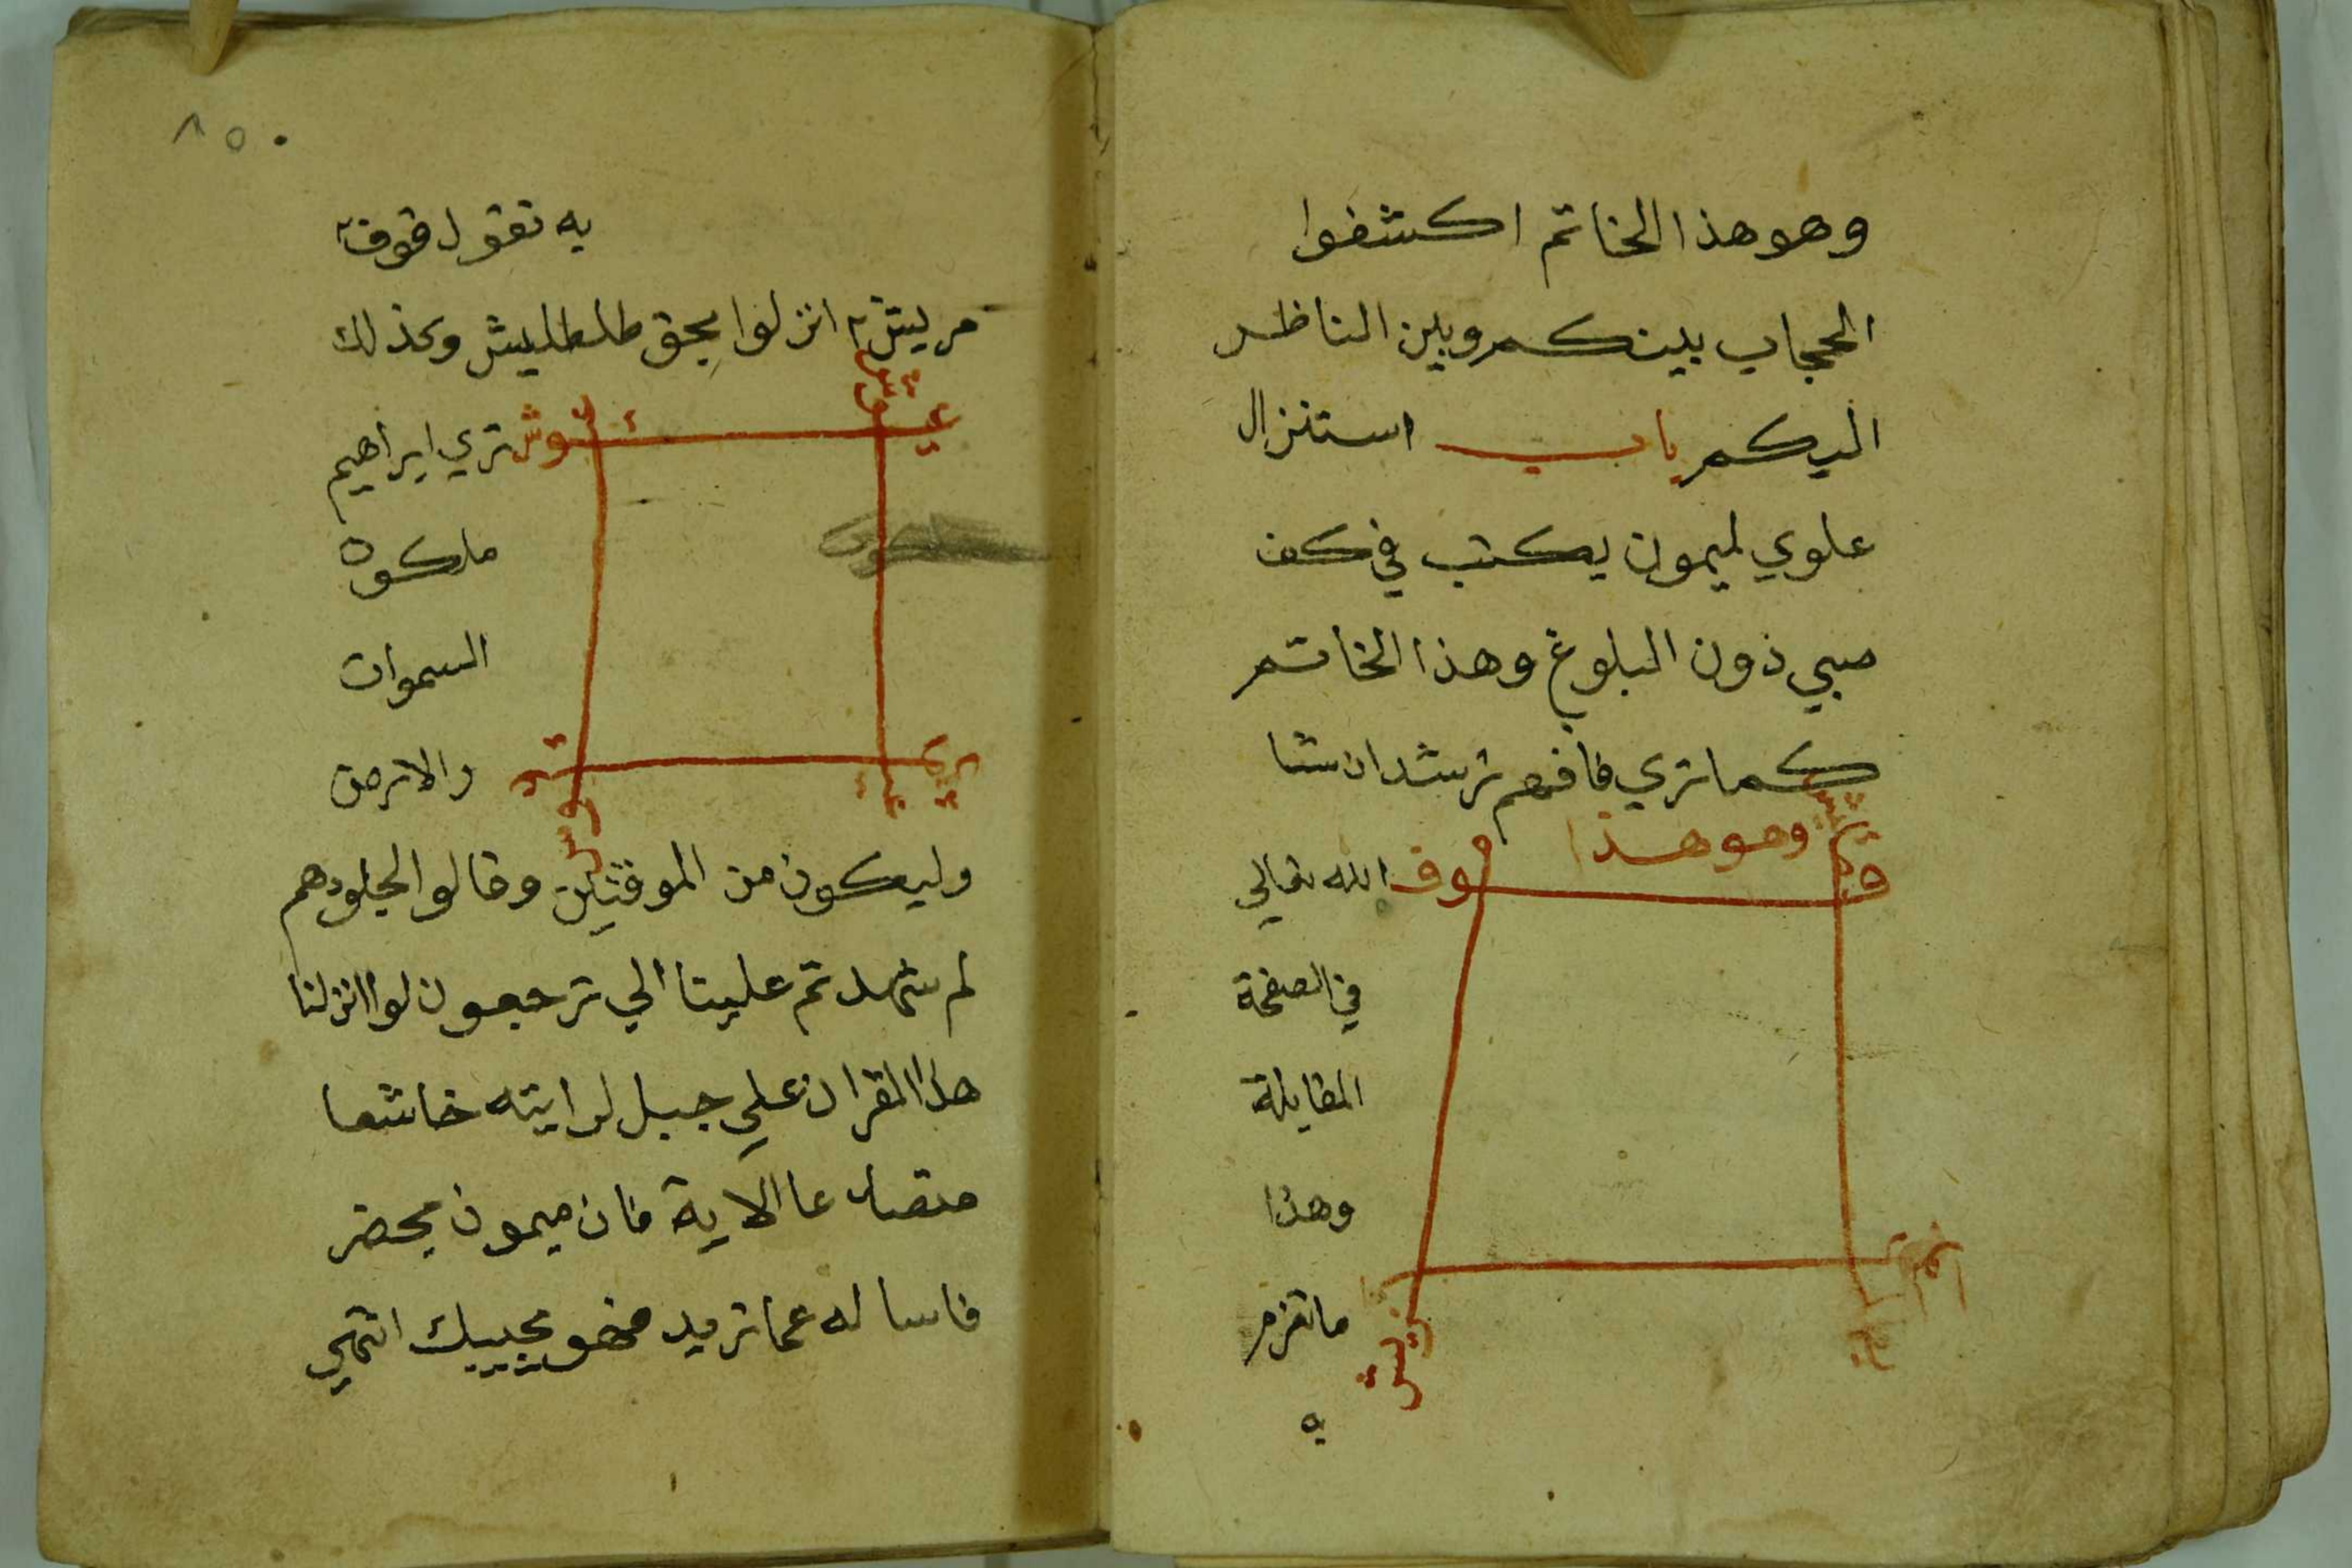 وهو هذا الخاتم اكشفوا
الحجاب بينكم وبين الناظر
اليكم باب استنزال
علوي لميمون يكتب في كف
صبي ذون البلوغ وهذا الخاتم
كما تري فافهم ترشد ان شا
وهو هذا
الله تعالي
في الصفحة
المقابلة
وهذا
ما تعزم
به
٨٥٠
به تقول قوف٢
مريش٢ انزلوا بحق طلطليش وكذلك
تري ابراهيم
ملكوة
السموات
والارض
وليكون من الموقنين وقالوا لجلودهم
لم شهدتم علينا الي ترجعون لوا انزلنا
هذا القران علي جبل لرايته خاشعا
متصدعا الاية فان ميمون يحضر
فاساله عما تريد فهو يجيبك انتهي